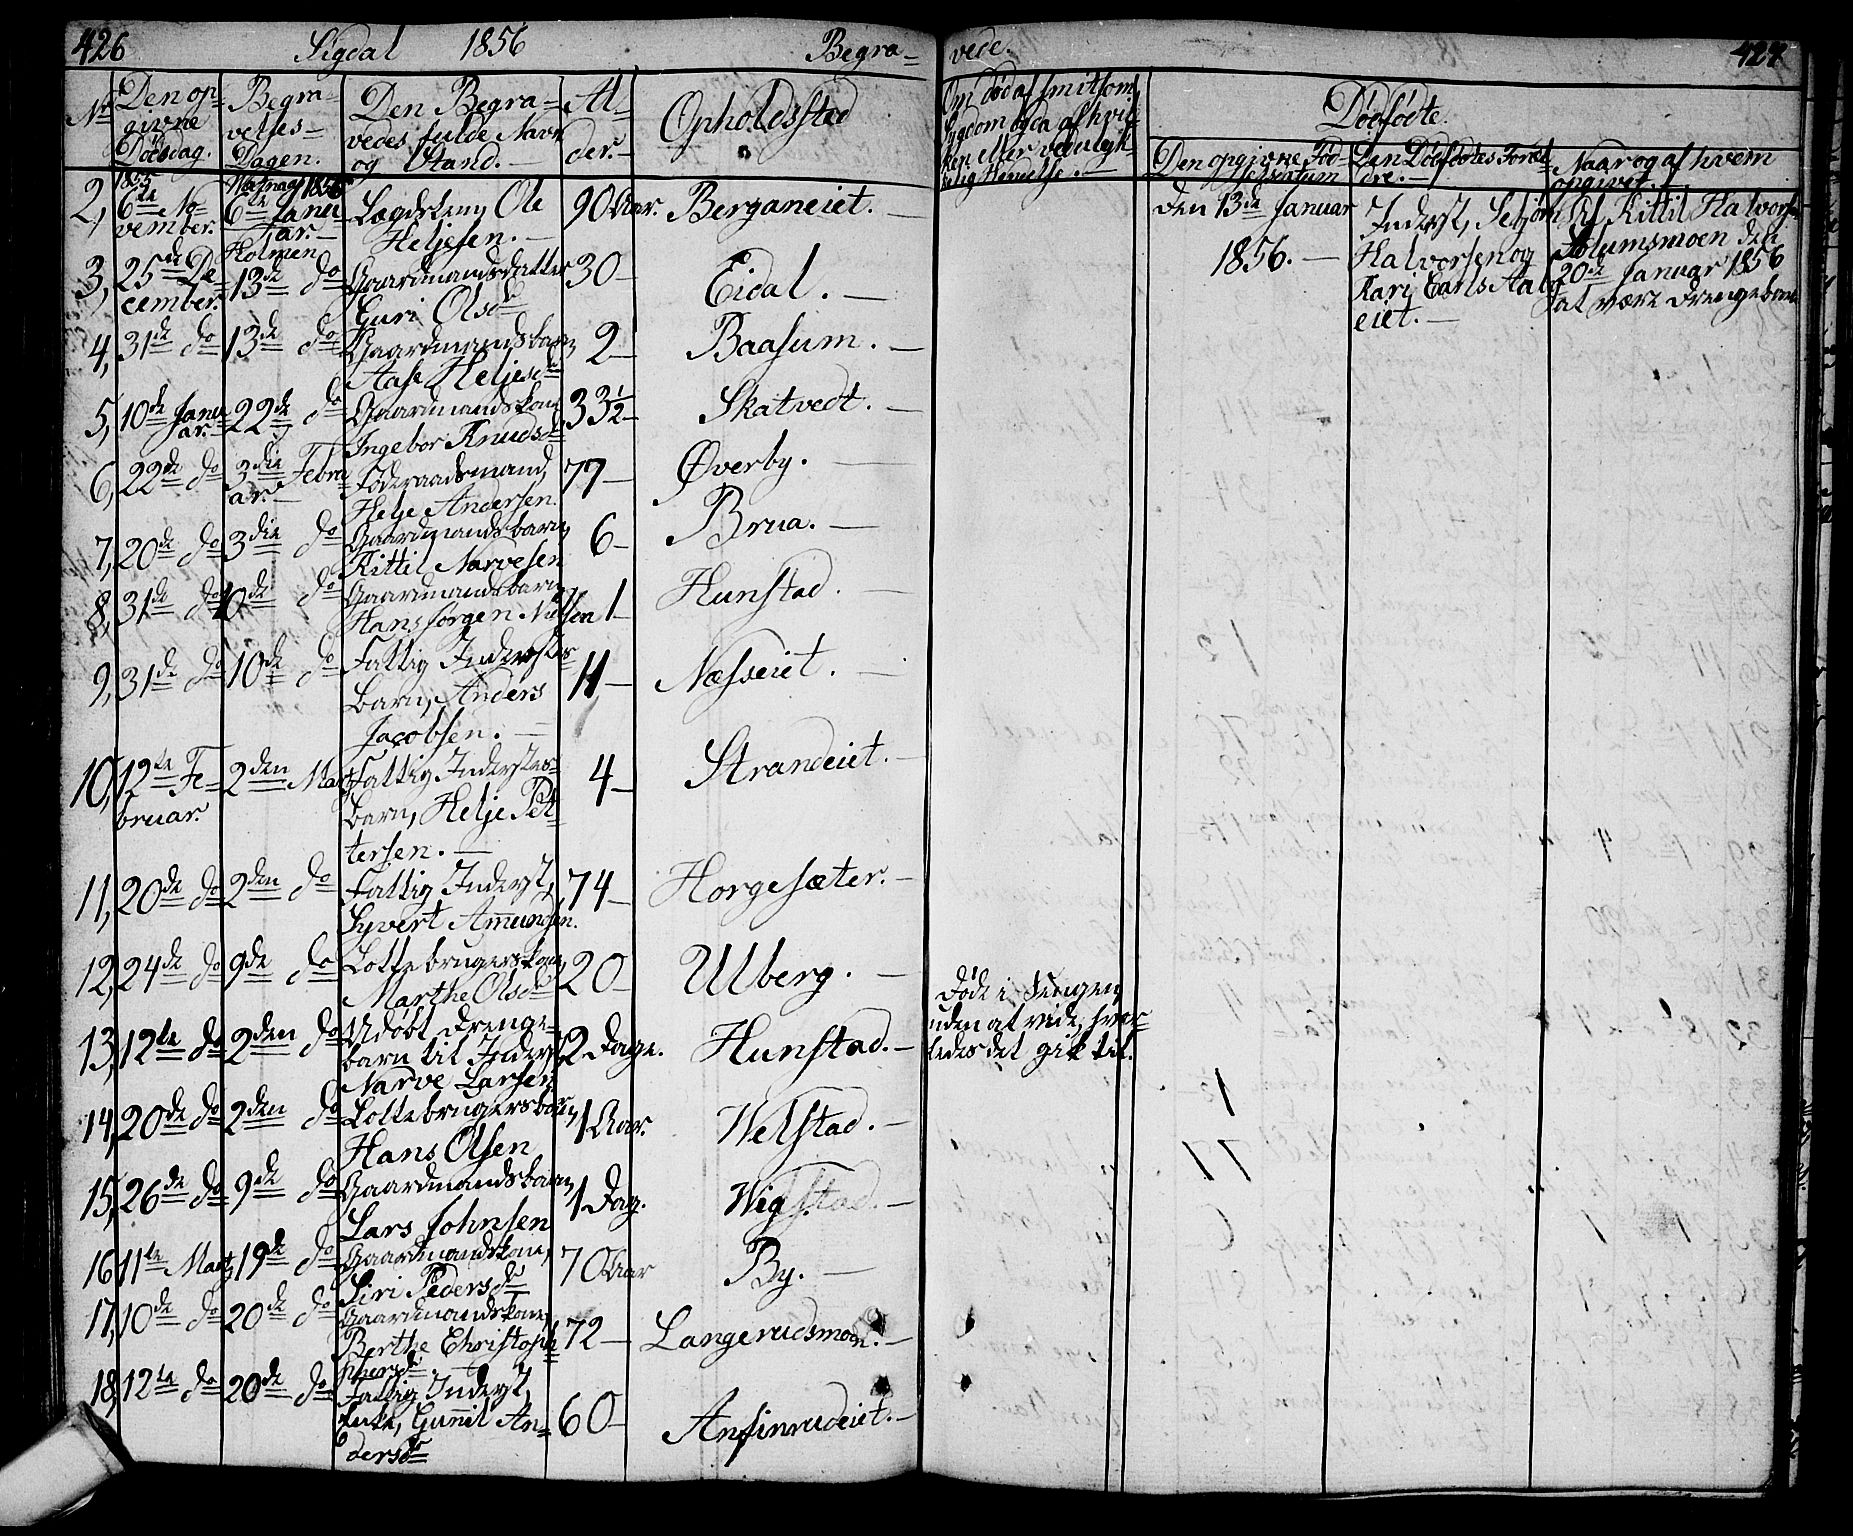 426 Sigdal 1856 Begra= vede. 427
No Den op= givne Dødsdag. Begra= velses= Dagen. Den Begra= vedes fulde Navn og Stand. Al= der. Opholdssted Om død af smitsom Sygdom og da af hvil= ken eller ved ulyk= kelig Hendelse. Dødfødte.
Den opgivne Fød= selsdatum Den Dødfødtes Foræl= dre. Naar og af hvem opgivet.
2, 1855 6te No= vember. 1856 6te Janu= ar. Holmen Lægdslem, Ole Heljesen. 90 Aar. Berganeiet.
Den 13de Januar 1856. Inderst, Halvorsen og Kari Earls Aaby= eiet. Af Kittil Halvors= Solumsmoen den 20de Januar 1856 at være Drengebarn
3, 25de De= cember. 13de do Gaardmandsdatter Guri Olsdr 30 Eidal.
4, 31de do 13de do Gaardmandsbarn, Aase Heljesdr 2 Baasum.
5, 10de Janu= ar. 22de do Gaardmandskone Ingebor Knudsdr 33½ Skatvedt.
6, 22de do 3die Febru= ar. Føderaadsmand, Helje Andersen. 77 Øverby.
7, 20de do 3die do Gaardmandsbarn, Kittil Narvesen 6 Brua.
8, 31de do 10de do Gaardmandsbarn, Hans Jørgen Nielsen 1 Hunstad.
9, 31de do 10de do Fattig Inderstes= barn, Anders Jacobsen. 11 Næsseiet.
10, 12te Fe= bruar. 2den Mart, Fattig Inderstes= barn, Helje Pet= tersen. 4 Strandeiet.
11, 20de do 2den do Fattig Inderst, Syvert Amundsen. 74 Horgesæter.
12, 24de do 9de do Lottebrugerskone, Marthe Olsdr 20 Ulberg.
13, 12te do 2den do Udøbt Drenge= barn til Inderst, Narve Larsen 2 Dage. Hunstad. Døde i Sengen, uden at vide, hvor= ledes det gik til.
14, 20de do 2den do Lottebrugersbarn, Hans Olsen 1 Aar. Welstad.
15, 26de do 9de do Gaardmandsbarn, Lars Johnsen 1 Dag. Wigstad.
16, 11te Mart, 19de do Gaardmandskone, Siri Pedersdr 70 Aar By.
17, 10de do 20de do Gaardmandskone, Berthe Christoph= phersdr 72 Langerudsmoen.
18, 12te do 20de do Fattig Inderst, Enke, Gunnil An= dersdr 60 Ansinrudeiet.